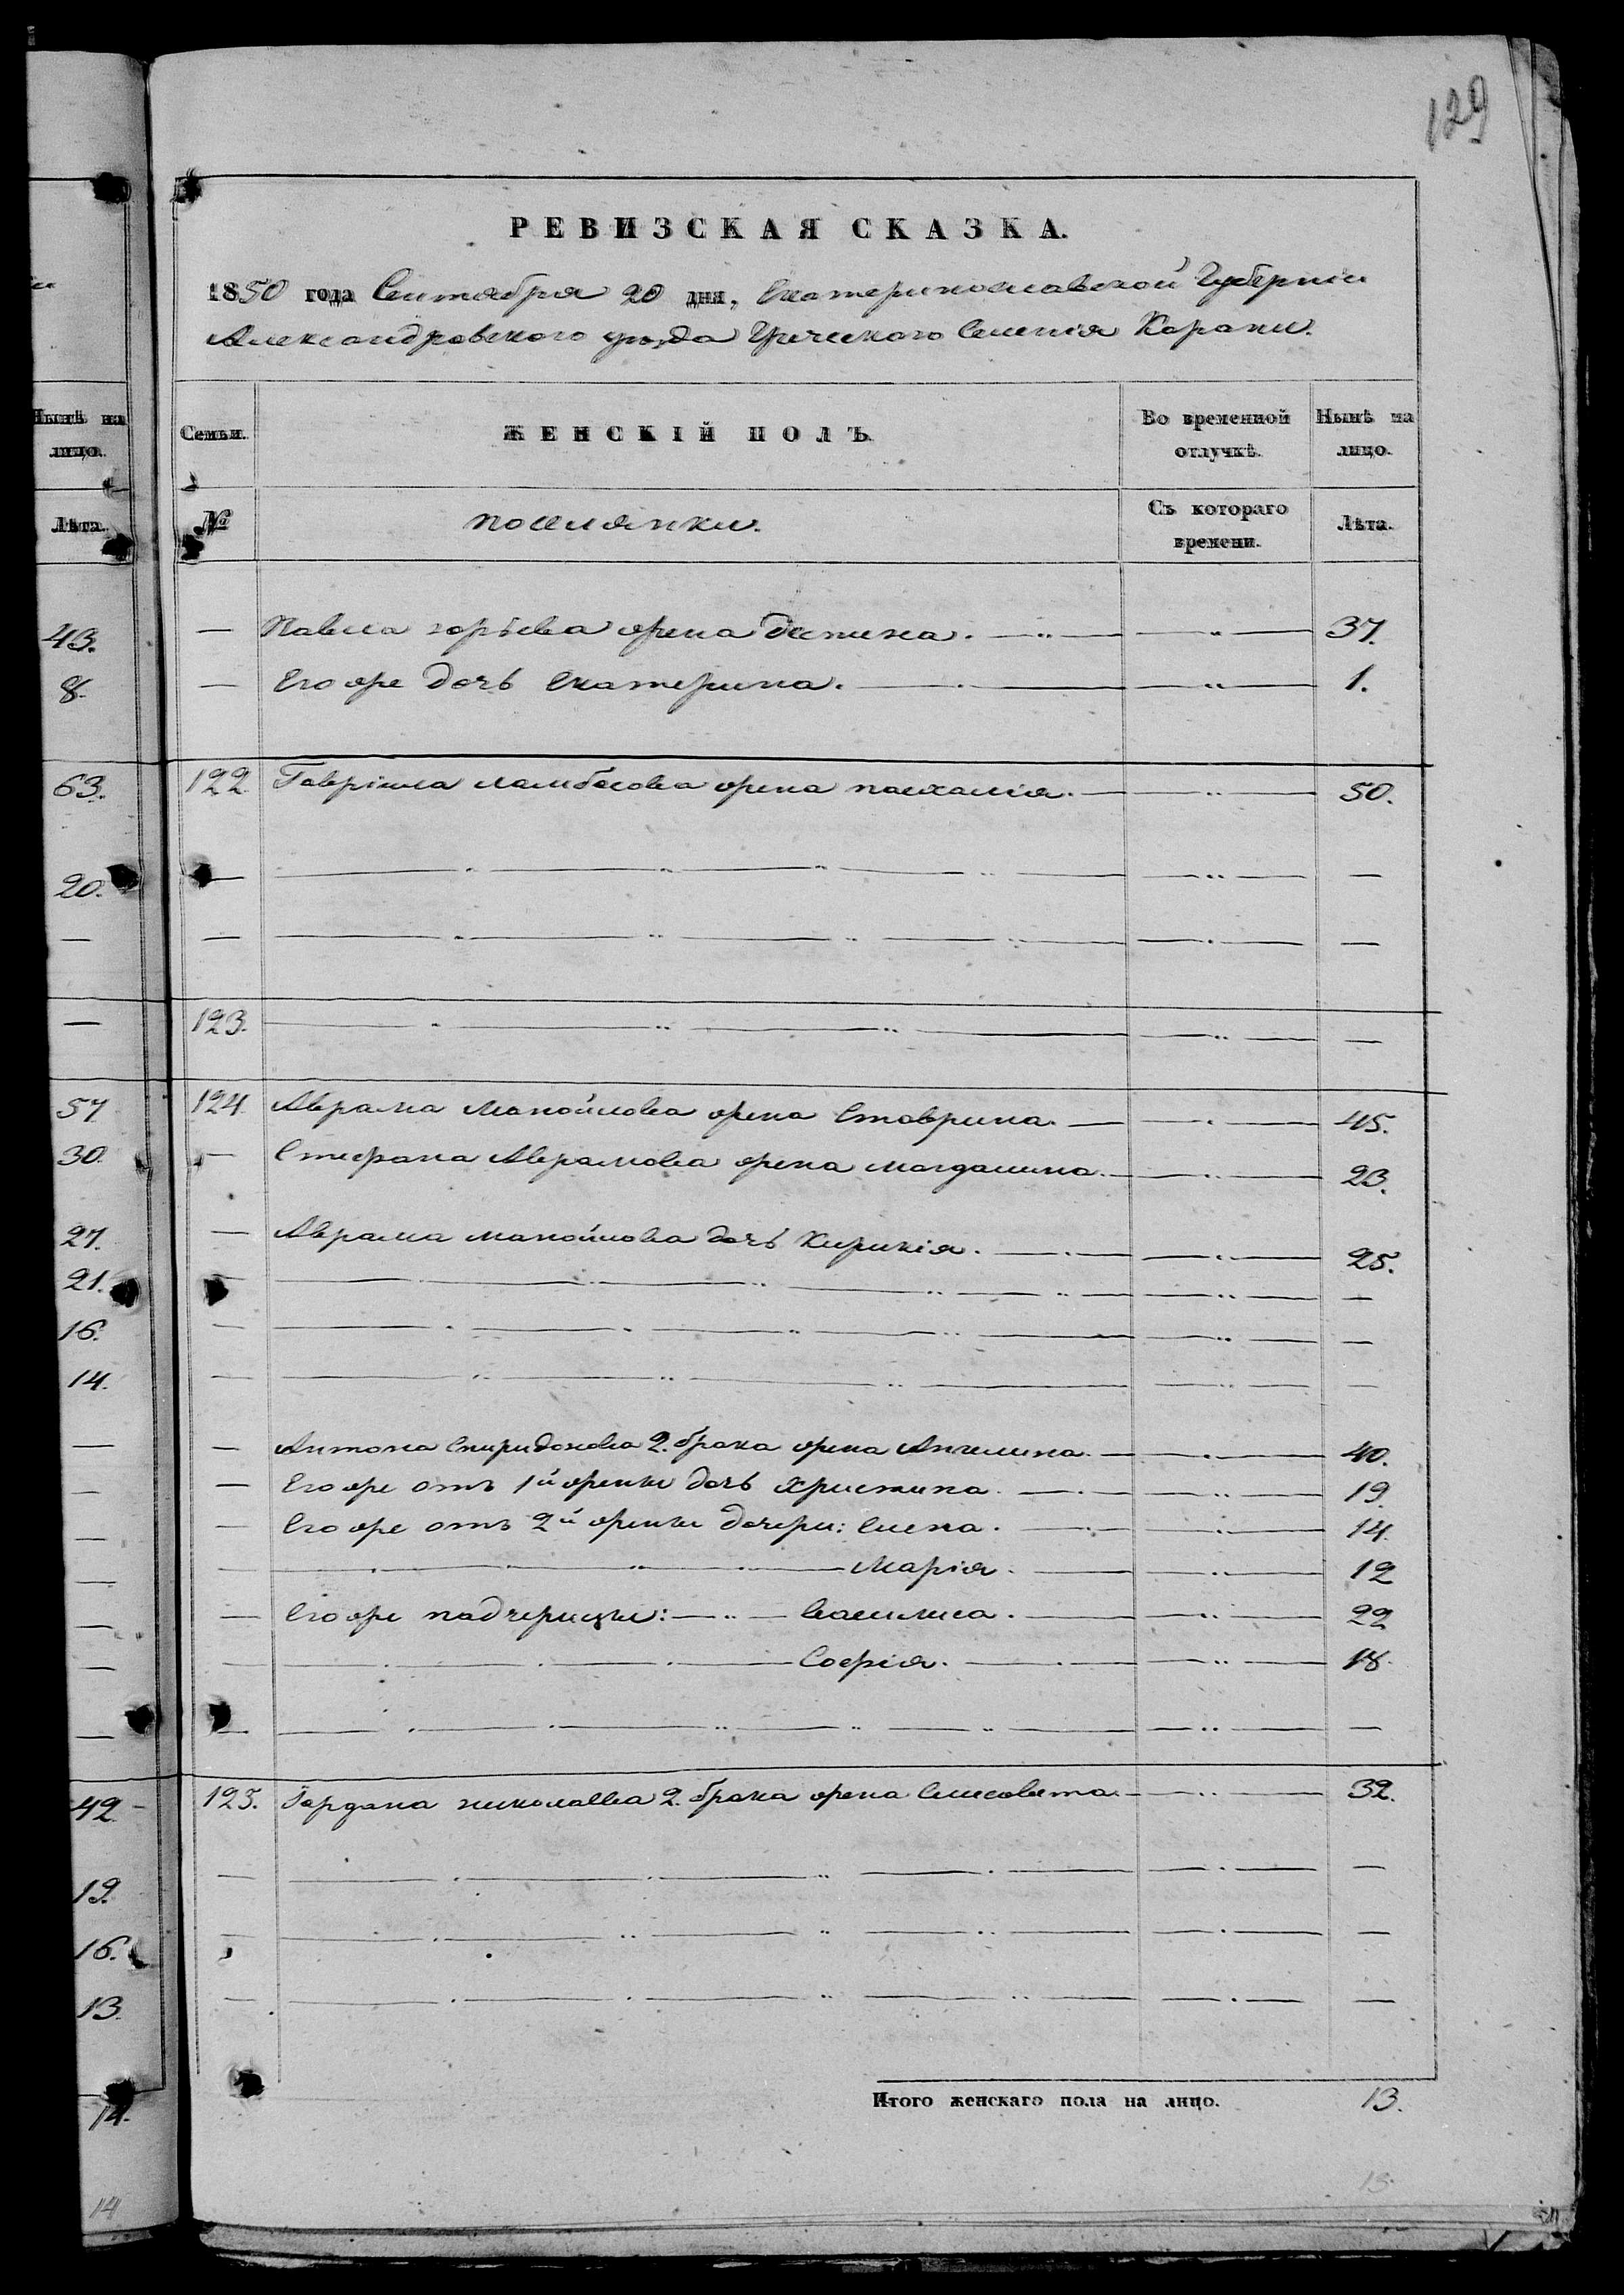 129
РЕВИЗСКАЯ СКАЗКА.
1850 года Сентября 20 дня, Екатеринославской Губернии
Александровского уѣзда Греческого Селенія Карани.
Нынѣ на лицо.
Лѣта.
43.
8.
63.
20.
—
—
57.
30.
27.
21.
16.
14.
—
—
—
—
—
—
—
42.
19.
16.
13.
14.
14
Семьи. ЖЕНСКІЙ ПОЛЪ. Во временной отлучкѣ. Нынѣ на лицо.
№ поселянки. Съ котораго времени. Лѣта.
— Павла жена —„— 37.
— Его же дочь Екатерина. —„— 1.
122. Гавріила жена пасхалія. —„— 50.
— —„— —
— —„— —
123. —„— —
124. Аврама Манойлова жена Ставрина. —„— 45.
— Стефана Аврамова жена магдалина. —„— 23.
— Аврама манойлова дочь Кирикія. —„— 25.
— —„— —
— —„— —
— —„— —
— Антона Спиридонова 2. брака жена Ангелина. —„— 40.
— Его же отъ 1й женки дочь Христина. —„— 19.
— Его же отъ 2й женки дочери: Елена. —„— 14.
— Марія. —„— 12
— Его же падчерицы: —„— Василиса. —„— 22
— Софія. —„— 18.
— —„— —
125. Іордана николаева 2. брака жена Елисовета. —„— 32.
— —„— —
— —„— —
— —„— —
Итого женскаго пола на лицо. 13.
13.